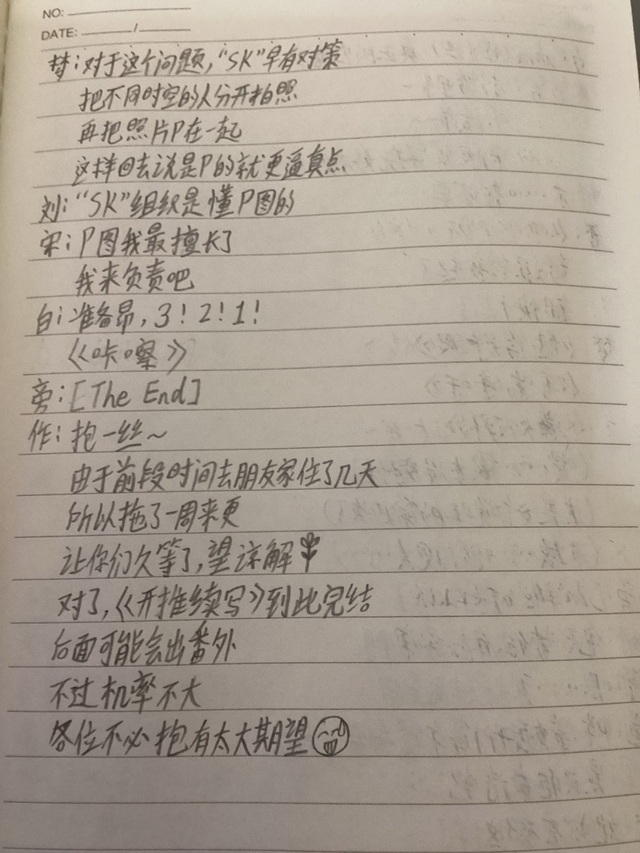 NO:
DATE: /
梦:对于这个问题,“SK”早有对策
把不同时空的人分开拍照
再把照片P在一起
这样回去说是P的就更逼真点
刘:“SK”组织是懂P图的
宋:P图我最擅长了
我来负责吧
白:准备昂,3!2!1!
《咔嚓》
旁:[The End]
作:抱一丝~
由于前段时间去朋友家住了几天
所以拖了一周来更
让你们久等了,望谅解
对了,《开推续写》到此完结
后面可能会出番外
不过机率不大
各位不必抱有太大期望